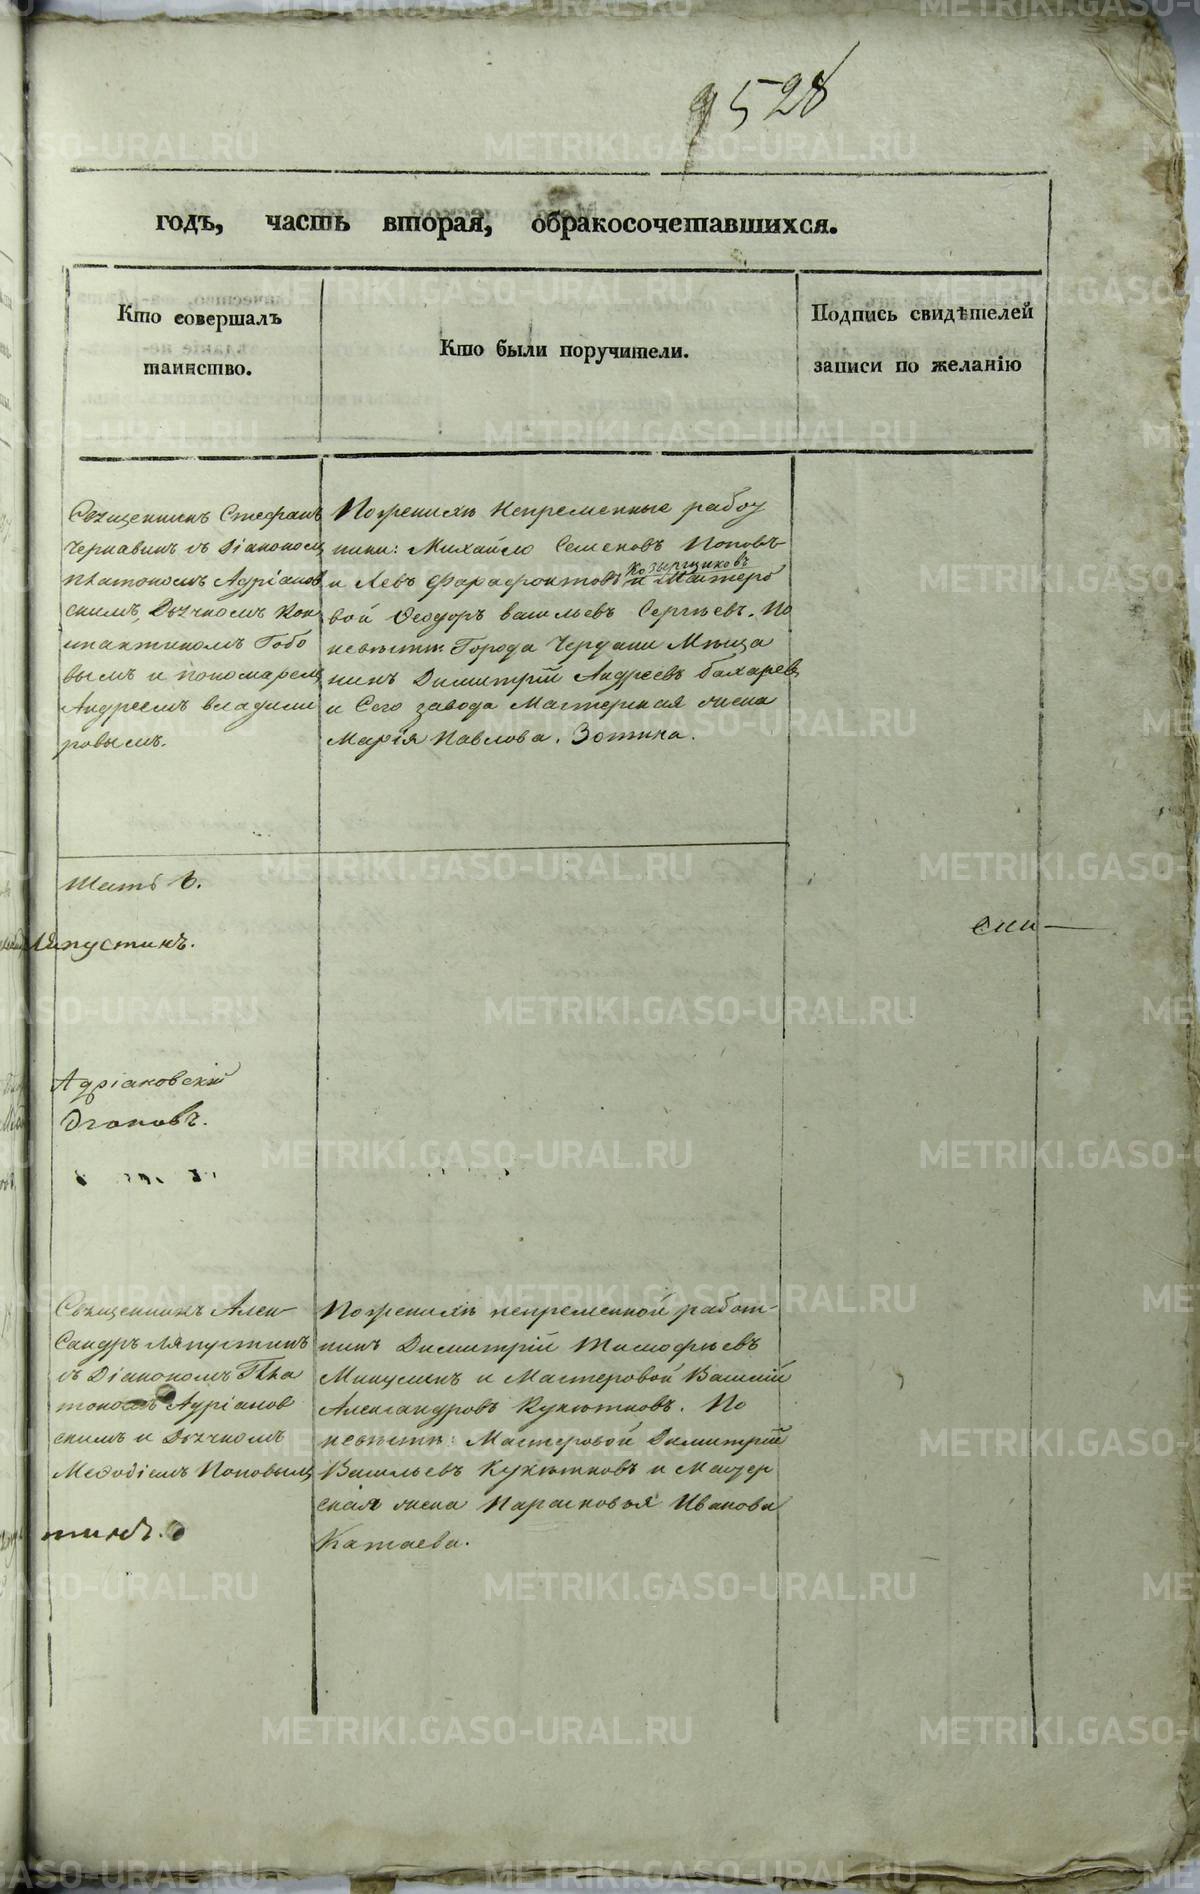 528
годъ, часть вторая, обракосочетавшихся.
Кто совершалъ
таинство.
Кто были поручители.
Подпись свидѣтелей
записи по желанію
Священникъ Стефанъ
Чернавинъ съ Діакономъ
Платономъ Адріанов
скимъ, Дьячкомъ Кон
стантиномъ
вымъ и пономаремъ
Андреемъ Владими
ровымъ.
По женихѣ Непременные работ
ники: Михайло Семеновъ Поповъ
Козырщиковъ
и Левъ Фарафонтовъ и Мастеро
вой Ѳеодоръ Васильевъ Сергѣевъ. По
невѣстѣ: Города Чердыни Мѣща
нинъ Димитрій Андреевъ Бахаревъ
и Сего завода Мастерская жена
Марія Павлова Зотина.
Ляпустинъ.
Адріановскій
Священникъ Алек
сандръ Ляпустинъ
съ Діакономъ Пла
тономъ Адріанов
скимъ и Дьячкомъ
Меѳодіемъ Поповымъ
тинъ.
По женихѣ непременной работ-
никъ Димитрій Тимофѣевъ
Микулинъ и Мастеровой Василій
Александровъ Кукѣтковъ. По
невѣстѣ: Мастеровой Димитрій
Васильевъ Кукѣтковъ и Мастер
ская жена Парасковья Иванова
Катаева.
METRIKI.GASO-URAL.RU